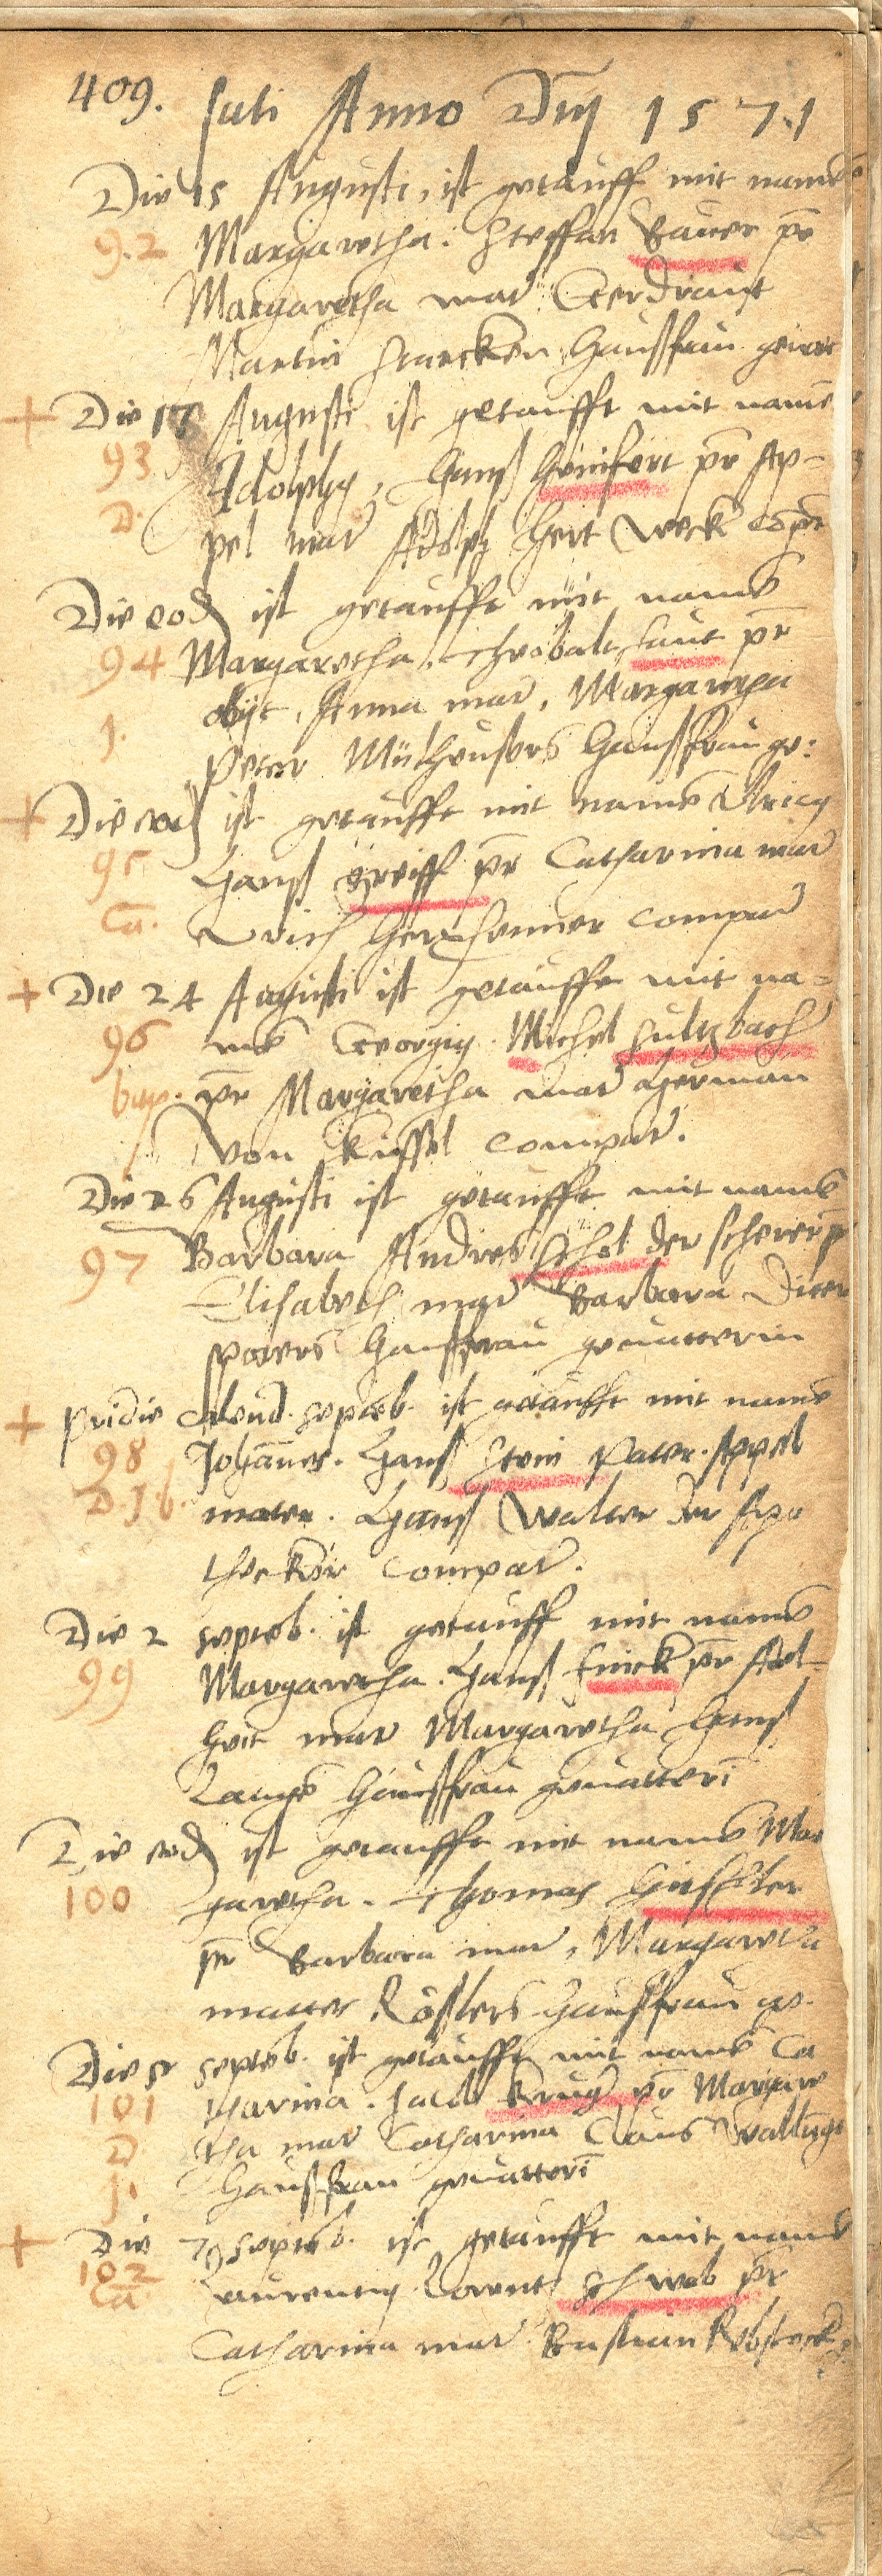 409. Juli Anno Dni 1571
Die 15 Augusti, ist getauff mit name
9.2 Margaretha. Steffan Bauer pr
Margaretha mar Gerdraut
Martin Starcken Haußfrau gevat
+ Die 17 Augusti ist getaufft mit name
93 Adolphg, Hanß Henifert pr Ap-
D. pel mar Adolph Hert Weck copr
Die eod ist getaufft mit name
94 Margaretha. Theobalt Faut pr
obijt, Anna mar, Margaretha
J. Peter Mütheusers Haußfrau ge:
+ Die eod ist getaufft mit name Ulricg
95 Hanß Greiff pr Catharina mar
Ca. Ulrich compar
+ Die 24 Augusti ist getaufft mit na=
96 me Georgig. Michel Sultzbach
bap. pr Margaretha mar Herman
von Kussel compar.
Die 26 Augusti ist getaufft mit name
97 Barbara Andres Schol der scherer pr
Elisabeth mar Barbara Diter
spaters Haußfrau gevatterin
+ pridie Calend. septeb. ist getaufft mit name
98 Johannes. Hanß Stein Pater. Appel
D. J b. mater. Hans Walter der Apo
thecker compar.
Die 2 septeb. ist getauff mit name
99 Margaretha. Hanß Finck pr Adel-
heit mar Margaretha Hanß
Lange Haußfrau gevatteri
Die eod ist getaufft mit name Mar
100 garetha. Thomas Heuffeler
pr Barbara mar, Margaretha
matter Rößlers Haußfrau ge.
Die 5 septeb. ist getaufft mit name Ca
101 tharina. Jacob Krug pr Margare
D tha mar Catharina Claus
J. Haußfrau gevatteri
+ Die septeb. ist getaufft mit name
102 Laurentig. Lorentz Schwab pr
Ca Catharina mar Bastian Rebstock